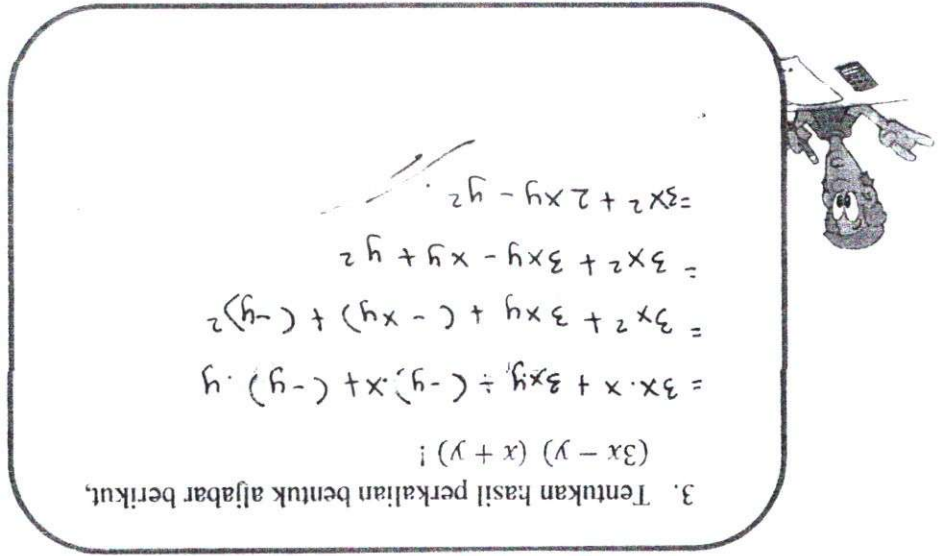 3. Tentukan hasil perkalian bentuk aljabar berikut,
(3x − y) (x + y) !
= 3x.x + 3x.y + (-y).x + (-y).y
= 3x² + 3xy + (-xy) + (-y)²
= 3x² + 3xy - xy + y²
=3x² + 2xy - y²